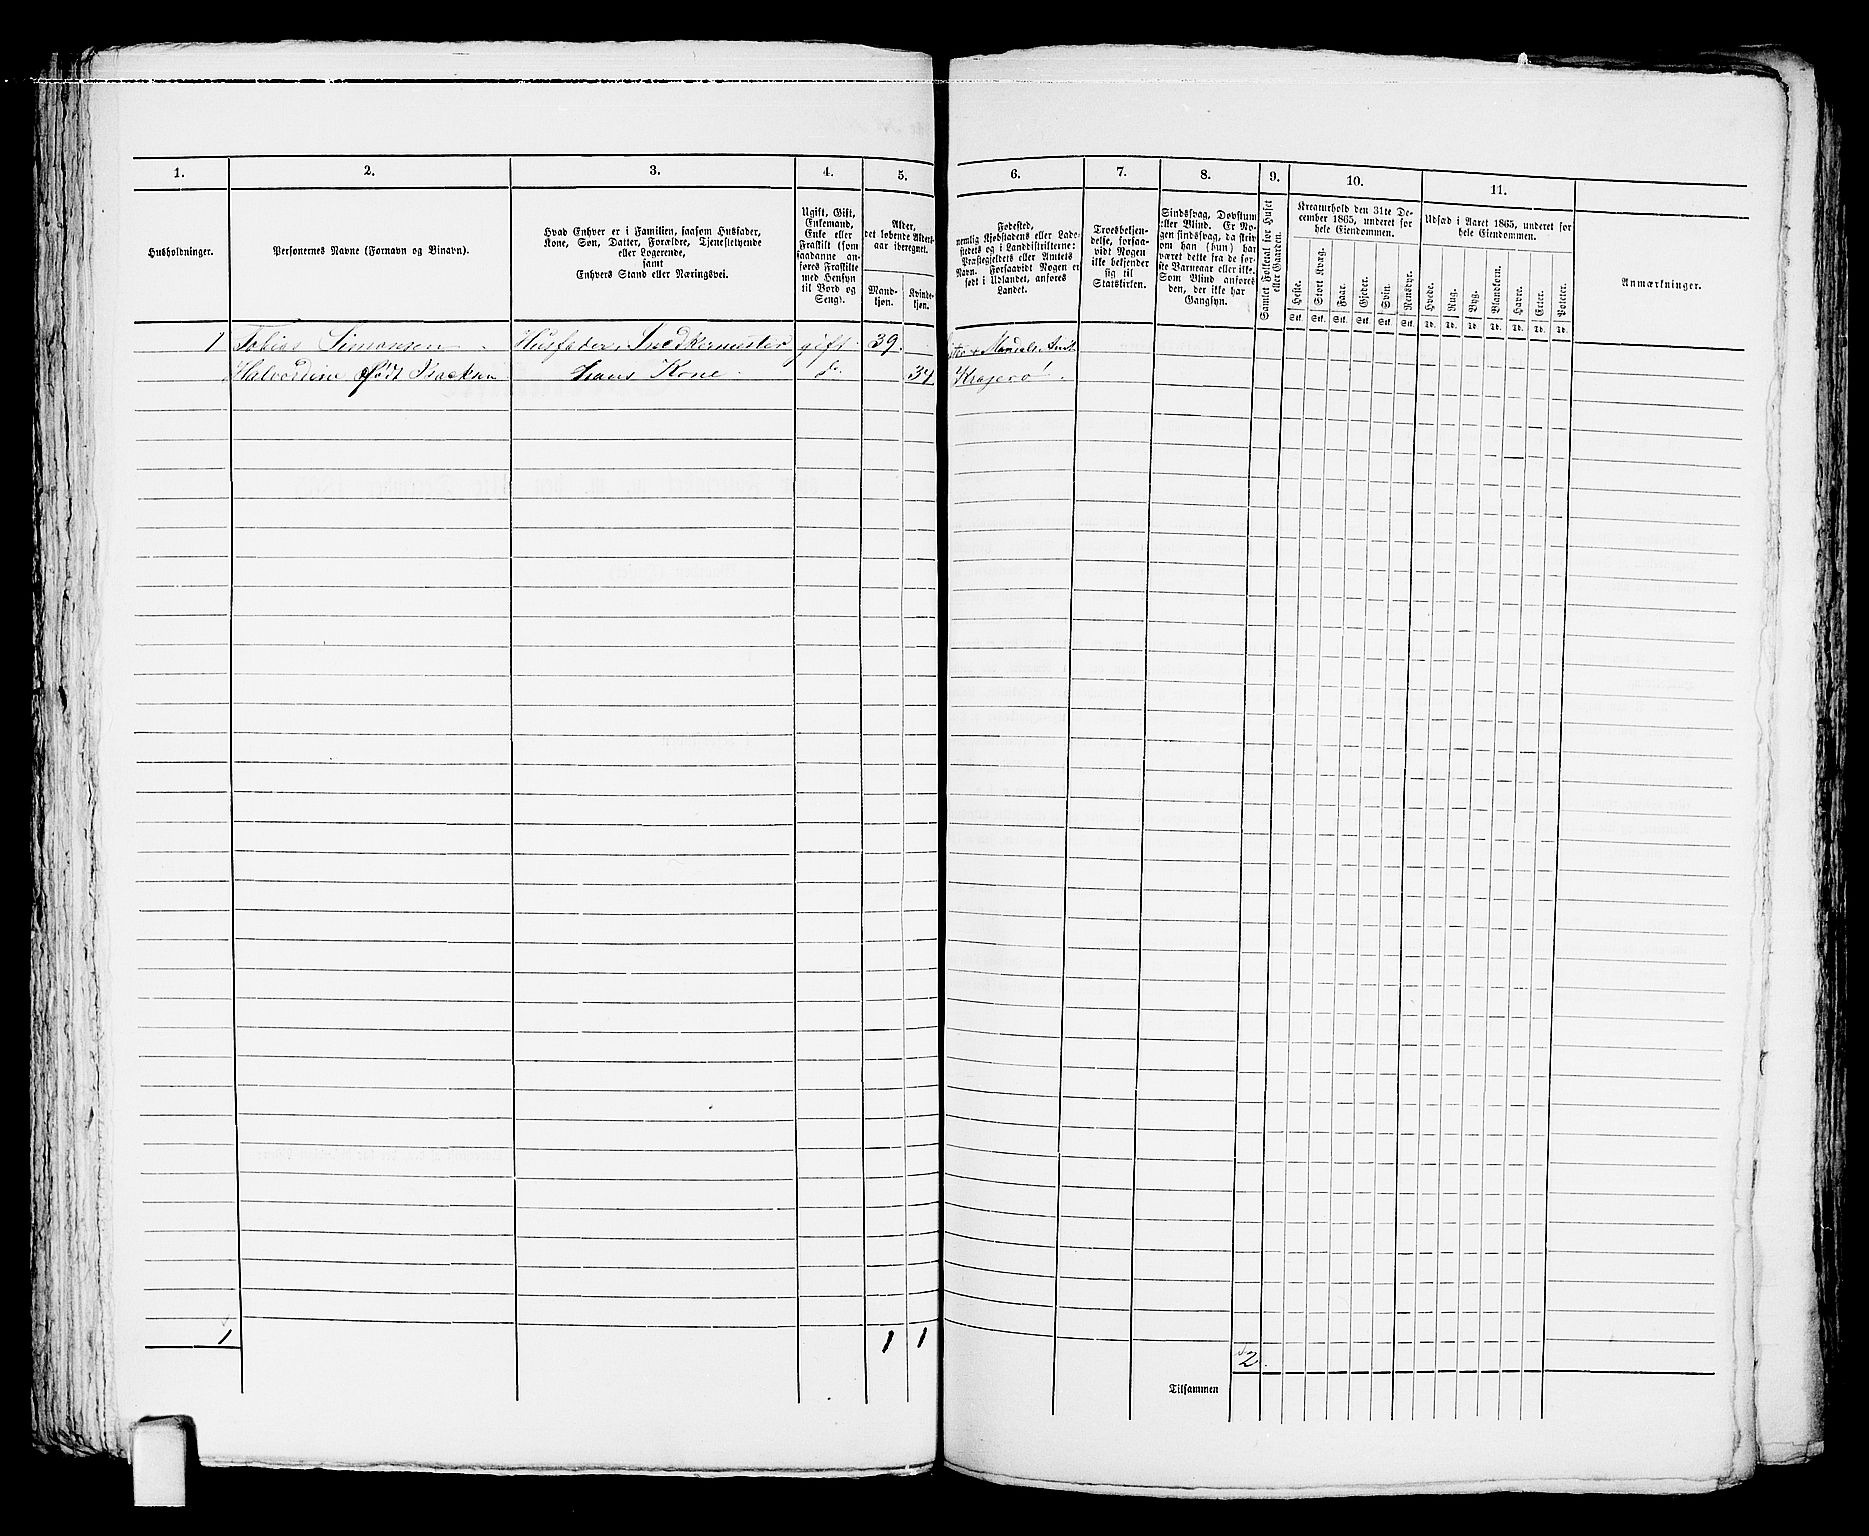 1. 2. 3. 4. 5. 6. 7. 8. 9. 10. 11.
Husholdninger.
Personernes Navne (Fornavn og Binavn).
Hvad Enhver er i Familien, saasom Husfader,
Kone, Søn, Datter, Forældre, Tjenestetyende
eller Logerende,
samt
Enhvers Stand eller Næringsvei.
Ugift, Gift,
Enkemand,
Enke eller
Fraskilt (som
saadanne an-
føres Fraskilte
med Hensyn
til Bord og
Seng).
Alder,
det løbende Alders-
aar iberegnet.
Mand-
kjøn.
Kvinde-
kjøn.
Fødested,
nemlig Kjøbstadens eller Lade-
stedets og i Landdistrikterne:
Præstegjeldets eller Amtets
Navn. Forsaavidt Nogen er
født i Udlandet, anføres
Landet.
Troesbekjen-
delse, forsaa-
vidt Nogen
ikke bekjender
sig til
Statskirken.
Sindssvag, Døvstum
eller Blind. Er No-
gen sindssvag, da skriv
om han (hun) har
været dette fra de før-
ste Barneaar eller ikke.
Som Blind anføres
den, der ikke har
Gangsyn.
Samlet Folketal for Huset
eller Gaarden.
Kreaturhold den 31te De-
cember 1865, underet for
hele Eiendommen.
Heste.
Stort Kvæg.
Faar.
Gjeder.
Svin.
Rensdyr.
Stk. Stk. Stk. Stk. Stk. Stk.
Udsæd i Aaret 1865, underet for
hele Eiendommen.
Hvede.
Rug.
Byg.
Blandkorn.
Havre.
Erter.
Poteter.
Td. Td. Td. Td. Td. Td. Td.
Anmærkninger.
1 Tobias Simonsen Husfader, Snedkermester gift 39. Mandals Amt
Halvordine født Isaksen hans Kone. do. 34 Kragerø.
1 1 1 2.
Tilsammen